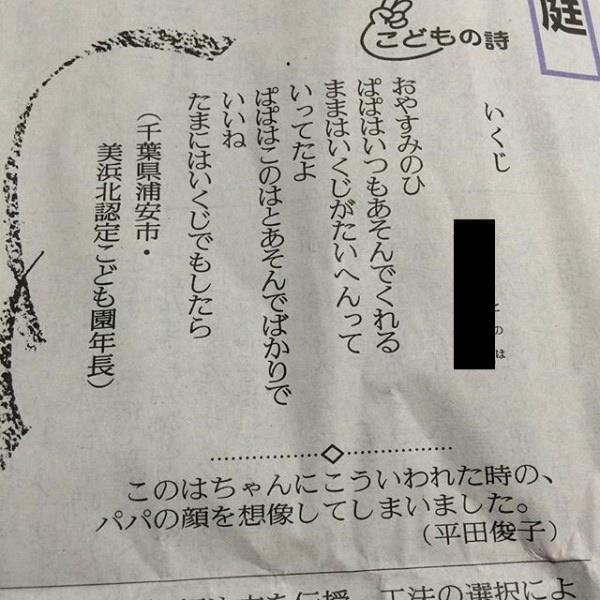 庭
こどもの詩
いくじ
とのは
おやすみのひ
ぱぱはいつもあそんでくれる
ままはいくじがたいへんって
いってたよ
ぱぱはこのはとあそんでばかりで
いいね
たまにはいくじでもしたら
（千葉県浦安市・
美浜北認定こども園年長）
このはちゃんにこういわれた時の、
パパの顔を想像してしまいました。
（平田俊子）
工法の選択によ